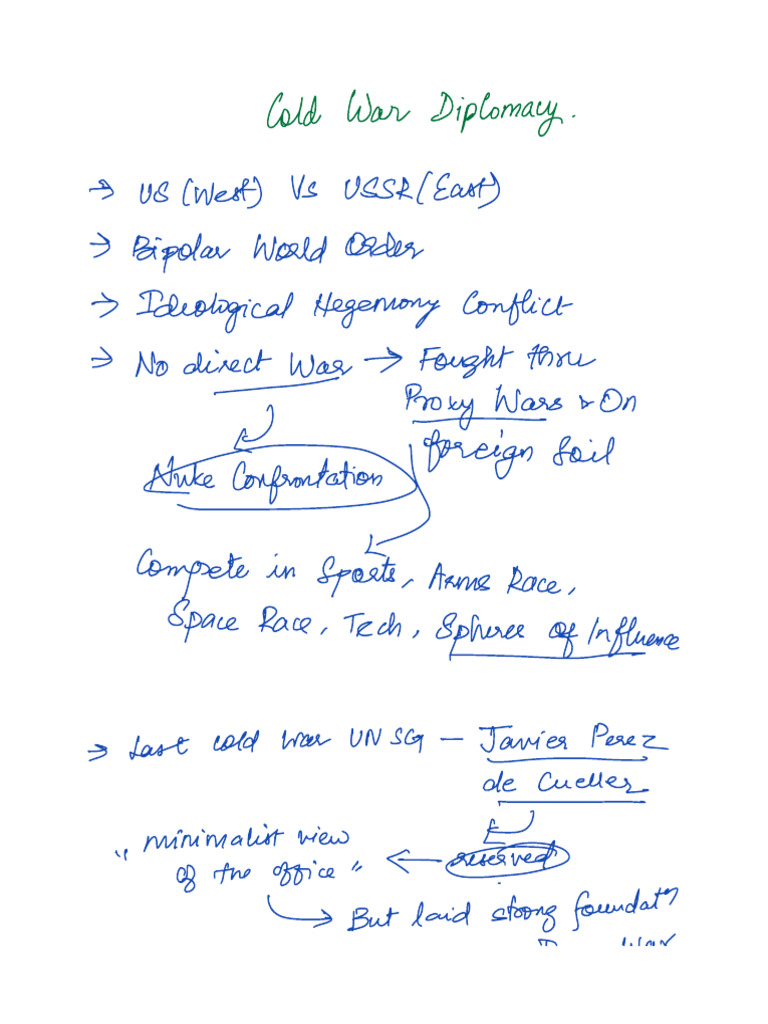 Cold War Diplomacy.
→ US (West) Vs USSR (East)
→ Bipolar World Order
→ Ideological Hegemony Conflict
→ No direct War → Fought thru
Proxy Wars & On
foreign Soil
Nuke Confrontation
Compete in Sports, Arms Race,
Space Race, Tech, Spheres of Influence
→ Last cold war UNSG – Javier Perez
de Cueller
"minimalist view ← reserved
of the office"
→ But laid strong foundatn